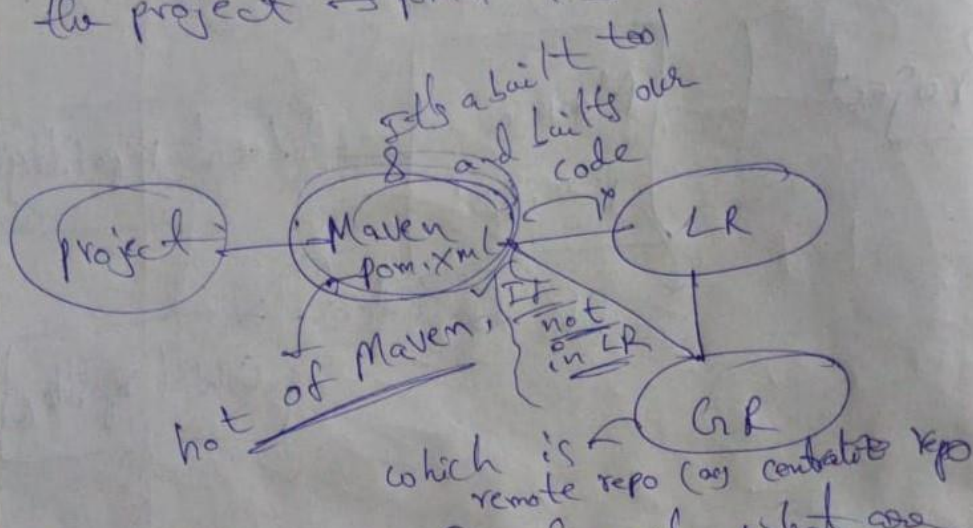 the project
It's a built tool
and builts our
code
project
Maven
pom.xml
LR
If
not
in LR
hot of Maven,
GR
which is
remote repo (as centralize repo
what are